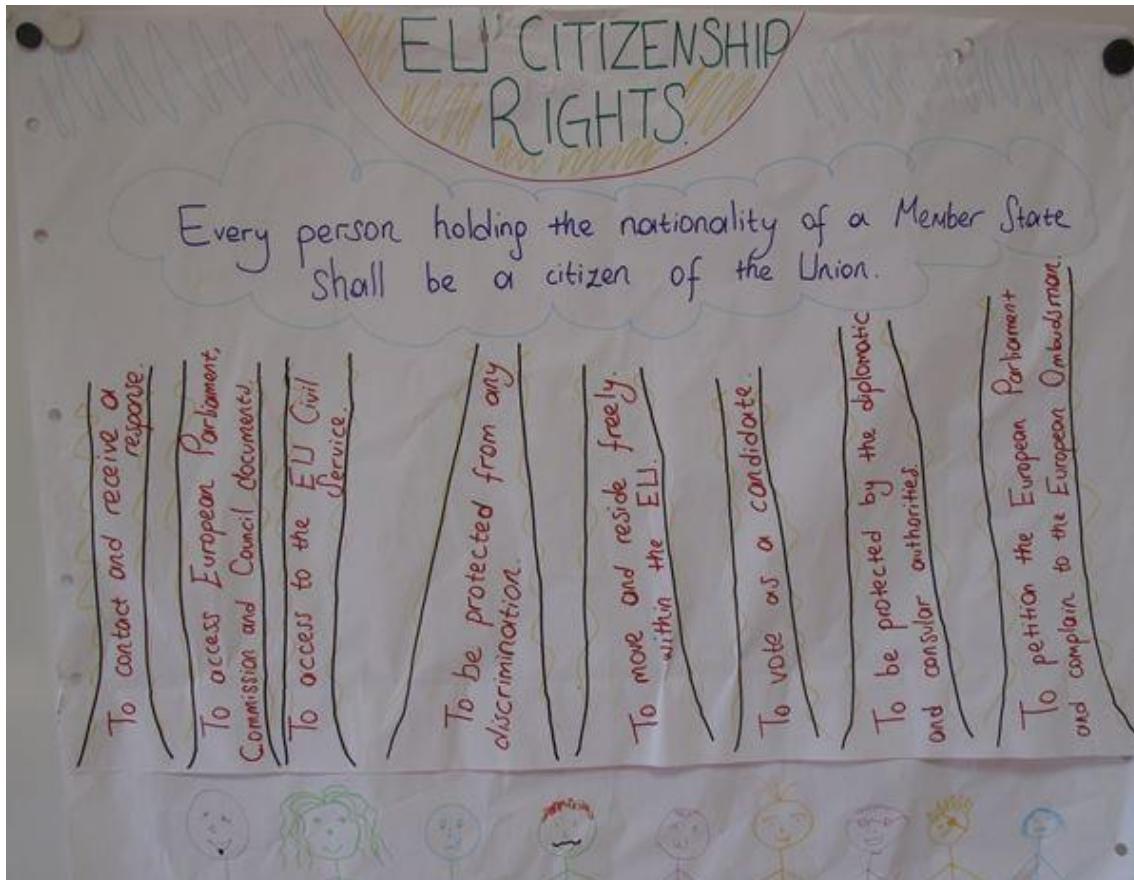 EU CITIZENSHIP
RIGHTS.
Every person holding the nationality of a Member State
Shall be a citizen of the Union.
To contact and receive a
response.
To access European Parliament,
Commission and Council documents.
To access to the EU Civil
Service.
To be protected from any
discrimination.
To move and reside freely.
within the EU.
To vote as a candidate.
To be protected by the diplomatic
and consular authorities.
To petition the European Parliament
and complain to the European Ombudsman.